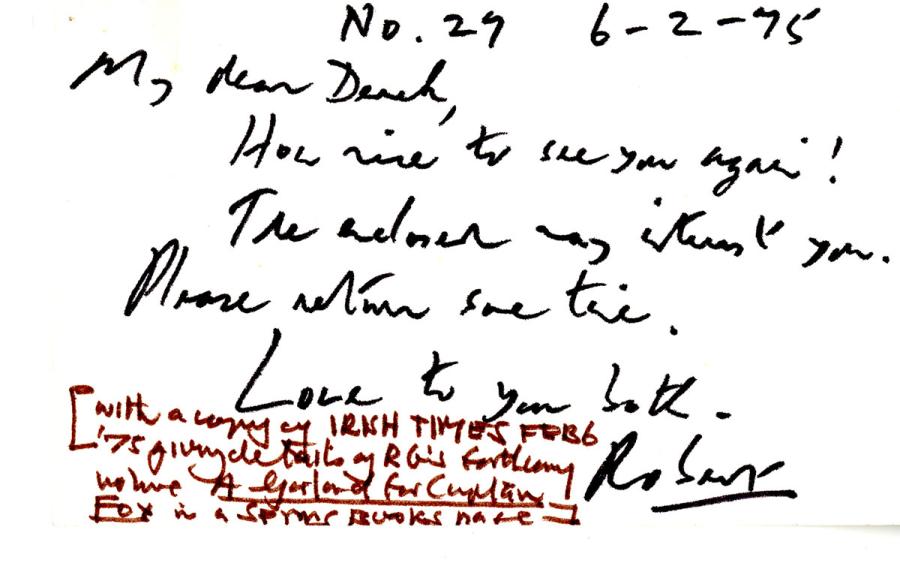 No. 29 6-2-75
My dear Derek,
How nice to see you again!
The enclosed may interest you.
Please return some time.
Love to you both.
Robert
[with a copy of IRISH TIMES FEB 6
'75 giving details of RG's forthcoming
volume A Garland for Captain
Fox in a SPRING BOOKS PAGE]